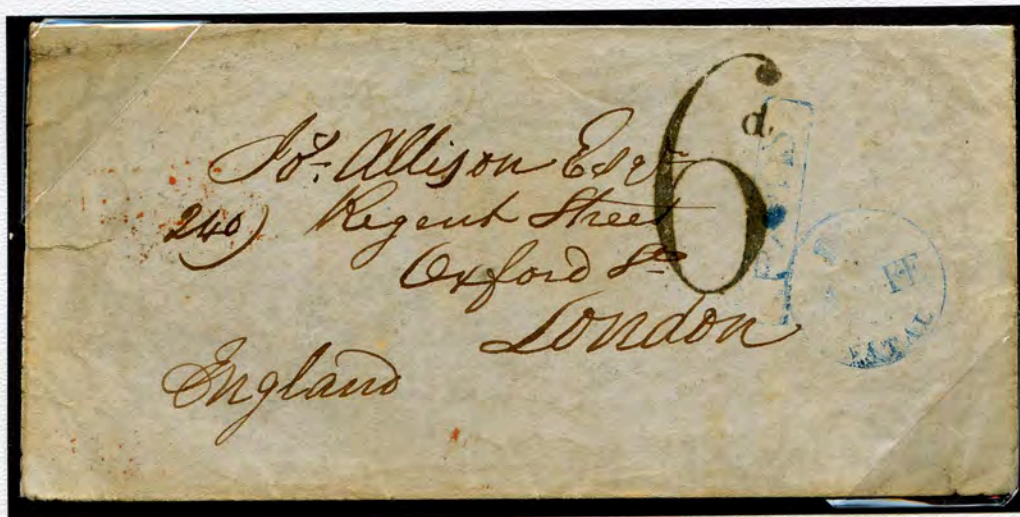 Jos. Allison Esqr
240) Regent Street
Oxford St
London
England
6d.
PAID
NATAL